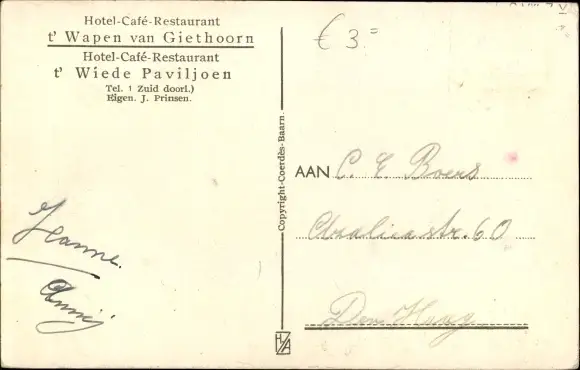 Hotel-Café-Restaurant
t' Wapen van Giethoorn
Hotel-Café-Restaurant
t' Wiede Paviljoen
Tel. 1 Zuid doorl.)
Eigen. J. Prinsen.
€ 3=
Copyright-Coerdès-Baarn.
AAN C. E. Boers
Azaliastr. 60
Den Haag
Jeanne.
Annij